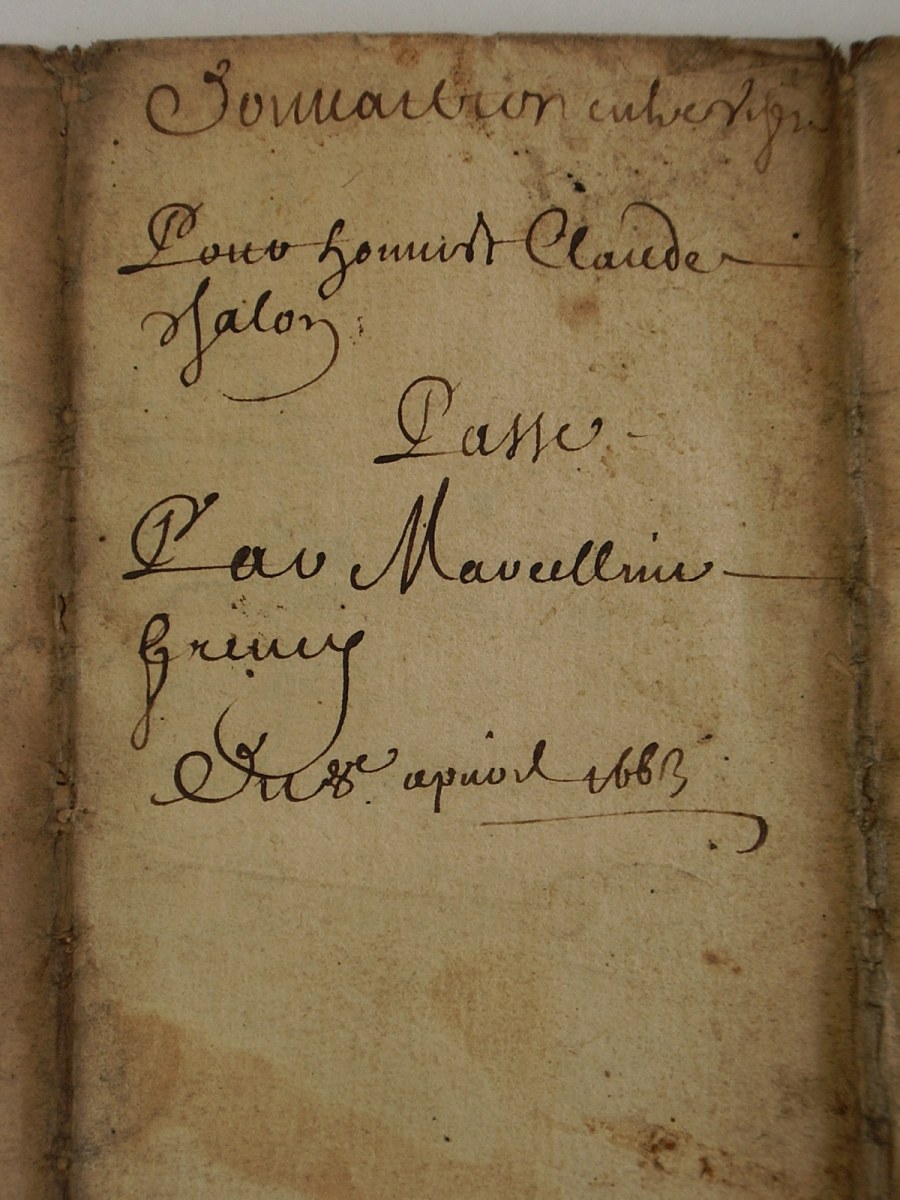 Donnation entre vifz
Pour honneste Claude
Chalon
Passe
Par Marcellin
Du 8e apvril 1663